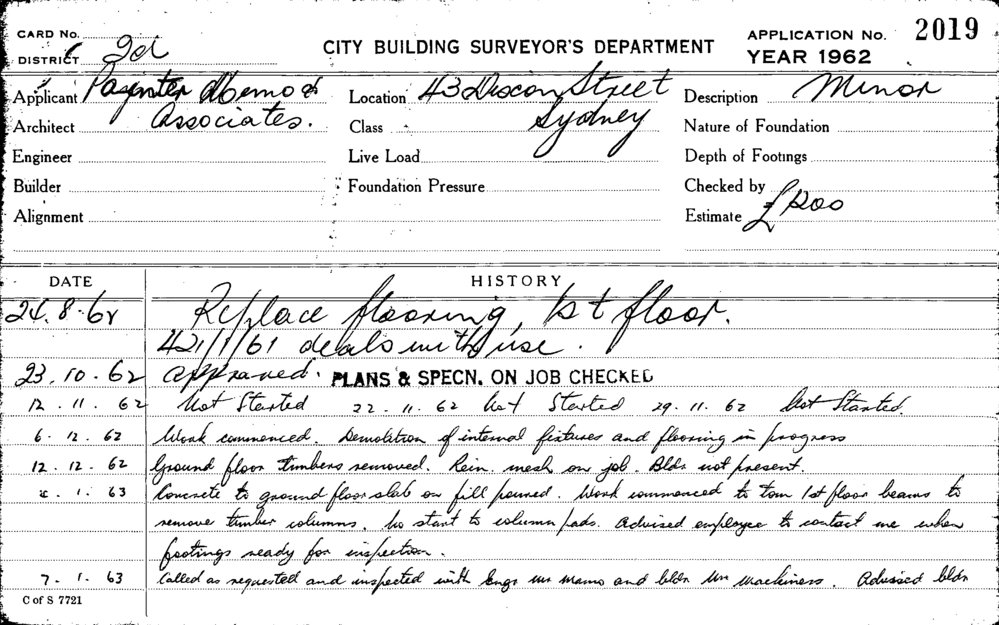 CARD No.
DISTRICT 2d
CITY BUILDING SURVEYOR'S DEPARTMENT
APPLICATION No. 2019
YEAR 1962
Applicant Paynter Memo &
Associates.
Architect
Engineer
Builder
Alignment
Location 43 Dixon Street
Sydney
Class
Live Load
Foundation Pressure
Description Minor
Nature of Foundation
Depth of Footings
Checked by
Estimate £1200
DATE HISTORY
24.8.62 Replace flooring, 1st floor.
421/1/61 deals with use.
23.10.62 approved. PLANS & SPECN. ON JOB CHECKED
12.11.62 Not Started 22.11.62 Not Started 29.11.62 Not Started.
6.12.62 Work commenced. Demolition of internal fixtures and flooring in progress
12.12.62 Ground floor timbers removed. Rein. mesh on job. Bldr not present.
1.63 Concrete to ground floor slab on fill poured. Work commenced to 1st floor beams to
remove timber columns. No start to column pads. Advised employee to contact me when
footings ready for inspection.
7.1.63 Called as requested and inspected with Engr Mr and bldr Mr. Advised bldr
C of S 7721